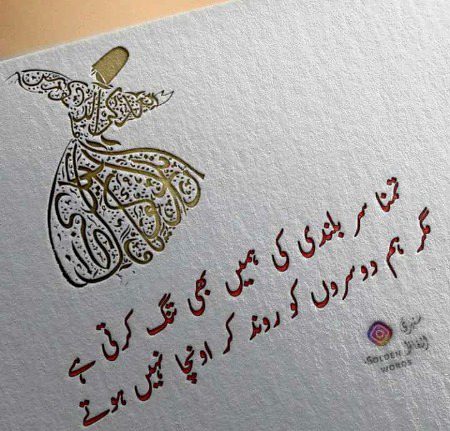 تمنا سر بلندی کی ہمیں بھی تنگ کرتی ہے
مگر ہم دوسروں کو روند کر اونچا نہیں ہوتے
سنہری الفاظ
GOLDEN
WORDS